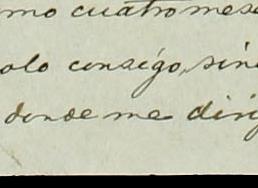 mo cuatro mese
olo consigo, sino
donde me dirig